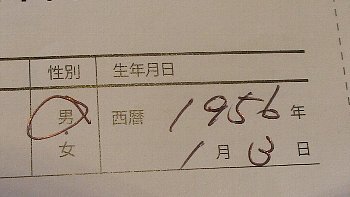 性別 生年月日
男 西暦 1956年
女 1月3日